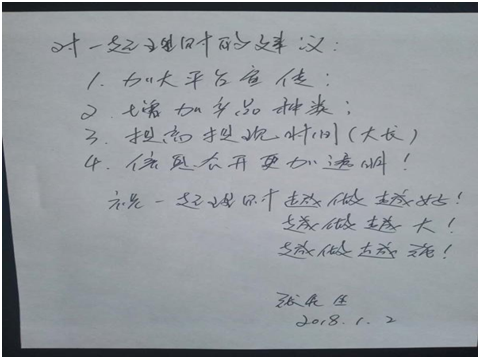 对一起理财的建议:
1. 加大平台宣传;
2. 增加产品种类;
3. 提高提现时间(太长)
4. 信息公开更加透明!
祝一起理财越做越好!
越做越大!
越做越强!
张
2018.1.2